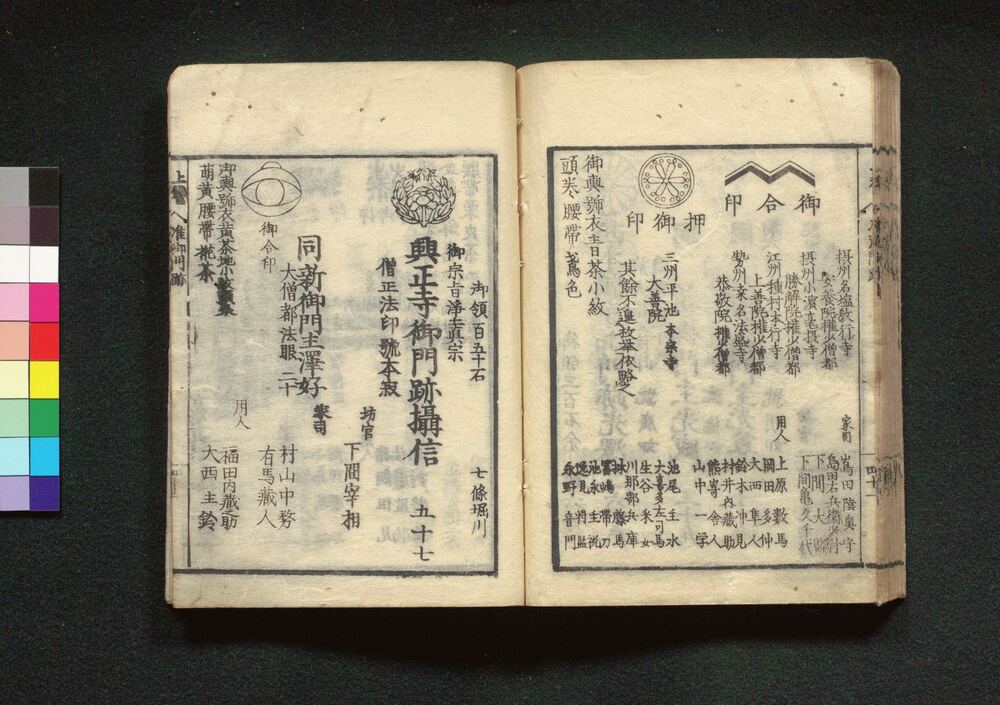 御合印
押御印
摂州名塩教行寺
摂州小濱毫摂寺
勝解院権少僧都
江州種村本行寺
上善院権少僧都
勢州桑名法盛寺
恭敬院権少僧都
三州平池本宗寺
大善院
其餘不遑枚挙依略之
御輿號衣青茶小紋
頭巻腰帯鳶色
家司
嶌田陸奥守
島田右兵衛少尉
下間大
下間亀久千代
用人
上原數馬
岡田多仲
大西隼人
鈴木沖見
村井内藏助
山中一学
池尾主水
大喜多左司馬
生谷釆女
川那部兵庫
林藤馬
池永主税
逸見将監
永野音門
御領百五十石
七條堀川
御宗旨浄土真宗
興正寺御門跡攝信
五十七
僧正法印號本寂
坊官
下間宰相
同新御門主澤好
大僧都法眼二十
家司
村山中務
有馬藏人
御合印
用人
福田内藏之助
大西主鈴
御輿號衣黄茶地小紋頭巻
萌黄腰帯花茶
上
准御門跡